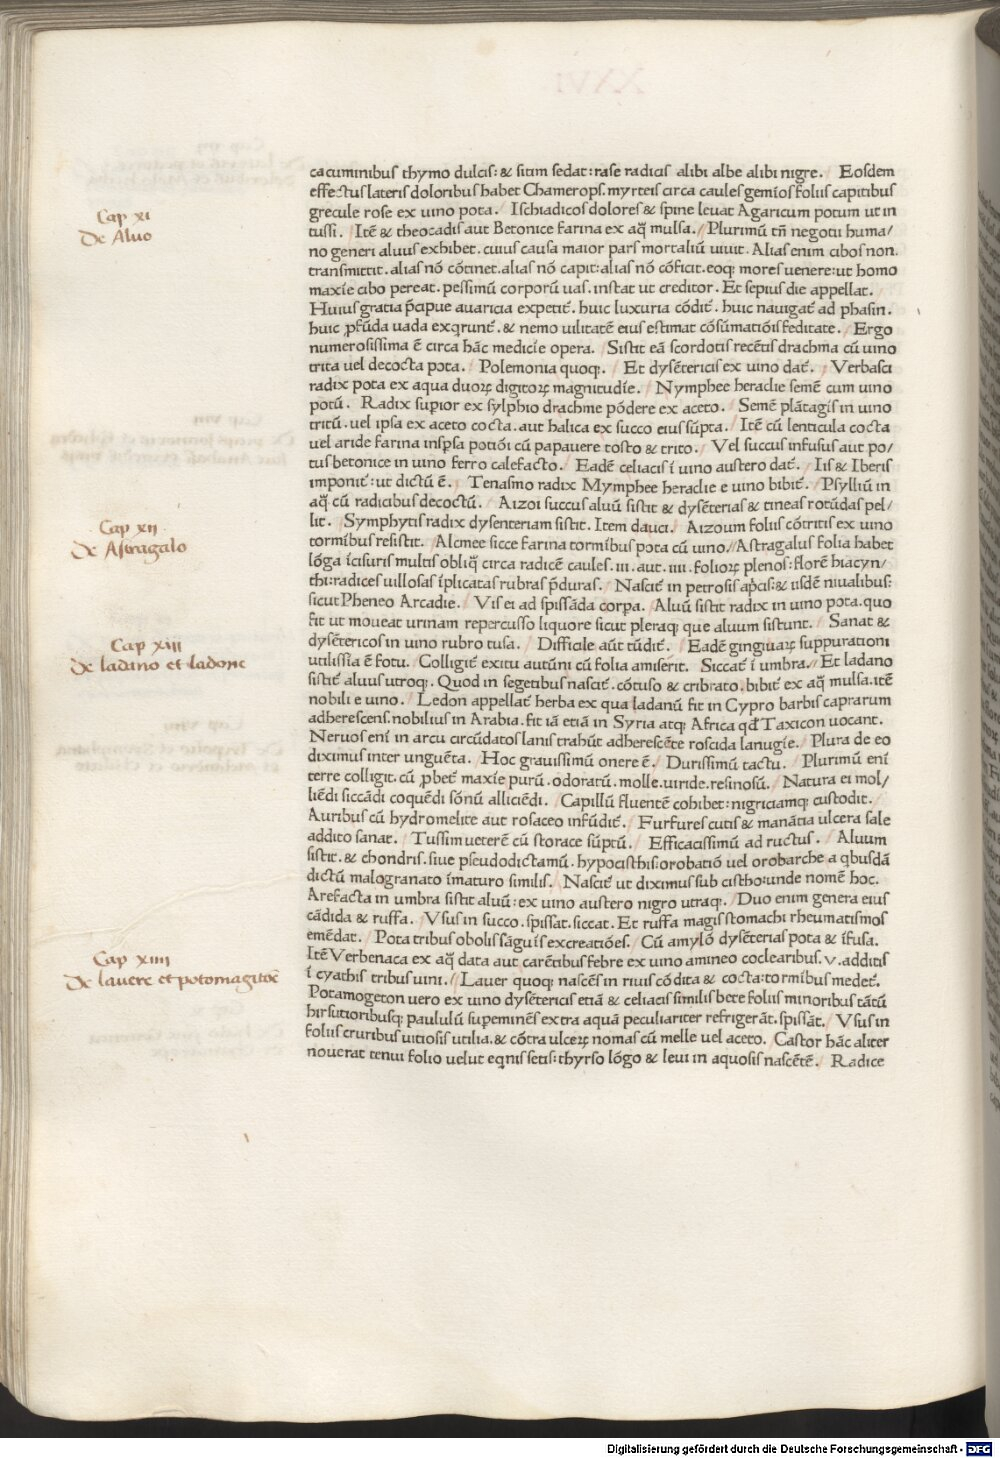 cacuminibus thymo dulcis: & sitim sedat: rase radicis alibi albe alibi nigre. Eosdem
effectus lateris doloribus habet Chamerops. myrteis circa caules gemīos foliis capitibus
grecule rose ex uino pota. Ischiadicos dolores & spine leuat Agaricum potum ut in
tussi. Itē & theocadis aut Betonice farina ex aq̄ mulsa. Plurimū tñ negotii huma/
no generi aluus exhibet. cuius causa maior pars mortaliū uiuit. Alias enim cibos non.
transmittit. alias nō cōtinet. alias nō capit: alias nō cōficit. eoq; mores uenere: ut homo
maxīe cibo pereat. pessimū corporū uas. instat ut creditor. Et sepius die appellat.
Huius gratia p̄cipue auaricia expetit̄. huic luxuria cōdit̄. huic nauigat̄ ad phasin.
huic ꝓfūda uada exqrunt̄. & nemo uilitatē eius estimat cōsūmatiōis feditate. Ergo
numerosissima ē circa hāc medicīe opera. Sistit eā scordotis recētis drachma cū uino
trita uel decocta pota. Polemonia quoq;. Et dysētericis ex uino dat̄. Verbasci
radix pota ex aqua duoꝝ digitoꝝ magnitudīe. Nymphee heraclie semē cum uino
potū. Radix supior ex sylphio drachme pōdere ex aceto. Semē plātagīs in uino
tritū. uel ipsa ex aceto cocta. aut halica ex succo eius sūpta. Itē cū lenticula cocta
uel aride farina insp̱sa potiōi cū papauere tosto & trito. Vel succus infusus aut po/
tus betonice in uino ferro calefacto. Eadē celiacis ī uino austero dat̄. Iis & Iberis
imponit̄: ut dictū ē. Tenasmo radix Mymphee heraclie e uino bibit̄. Psylliū in
aq̄ cū radicibus decoctū. Aizoi succus aluū sistit & dysēterias & tineas rotūdas pel/
lit. Symphytis radix dysenteriam sistit. Item dauci. Aizoum foliis cōtritis ex uino
tormībus resistit. Alcinee sicce farina tormībus pota cū uino/ Astragalus folia habet
lōga īcisuris multis obliq̄ circa radicē caules. iii. aut. iiii. folioꝝ plenos: florē hiacyn/
thi: radices uillosas īplicatas rubras p̄duras. Nascit̄ in petrosis ap̱cis: & iisdē niualibus:
sicut Pheneo Arcadie. Vis ei ad spissāda corpa. Aluū sistit radix in uino pota. quo
fit ut moueat urinam repercusso liquore sicut pleraq; que aluum sistunt. Sanat &
dysētericos in uino rubro tusa. Difficile aūt tūdit̄. Eadē gingiuaꝝ suppurationi
utilissīa ē fotu. Colligit̄ exitu autūni cū folia amiserit. Siccat̄ ī umbra. Et ladano
sistit̄ aluus utroq;. Quod in segetibus nascit̄. cōtuso & cribrato. bibit̄ ex aq̄ mulsa. itē
nobili e uino. Ledon appellat̄ herba ex qua ladanū fit in Cypro barbis caprarum
adherescens. nobilius in Arabia. fit iā etiā in Syria atq; Africa qđ Taxicon uocant.
Neruos enī in arcu circūdatos lanis trahūt adherescēte roscida lanugīe. Plura de eo
diximus inter unguēta. Hoc grauissimū onere ē. Durissimū tactu. Plurimū enī
terre colligit. cū ꝓbet̄ maxīe purū. odoratū. molle. uiride. resinosū. Natura ei mol/
liēdi siccādi coquēdi sōnū alliciēdi. Capillū fluentē cohibet: nigriciamq; custodit.
Auribus cū hydromelite aut rosaceo infūdit̄. Furfures cutis & manātia ulcera sale
addito sanat. Tussim ueterē cū storace sūptū. Efficacissimū ad ructus. Aluum
sistit. & chondris. siue pseudodictamū. hypocisthis. orobatiō uel orobarche a qbusdā
dictū malogranato īmaturo similis. Nascit̄ ut diximus sub cistho: unde nomē hoc.
Arefacta in umbra sistit aluū: ex uino austero nigro utraq;. Duo enim genera eius
cādida & ruffa. Vsus in succo. spissat. siccat. Et ruffa magis stomachi rheumatismos
emēdat. Pota tribus obolis sāguīs excreatiōes. Cū amylō dysēterias pota & īfusa.
Itē Verbenaca ex aq̄ data aut carētibus febre ex uino amineo coclearibus. v. additis
ī cyathis tribus uini. Lauer quoq; nascēs in riuis cōdita & cocta: tormībus medet̄.
Potamogeton uero ex uino dysētericis etiā & celiacis similis bete foliis minoribus tātū
hirsutioribusq; paululū sup̱eminēs extra aquā peculiariter refrigerāt. spissāt. Vsus in
foliis cruribus uitiosis utilia. & cōtra ulceꝝ nomas cū melle uel aceto. Castor hāc aliter
nouerat tenui folio uelut eqnis setis: thyrso lōgo & leui in aquosis nascētē. Radice
Cap xi
De Aluo
Cap xii
De Astragalo
Cap xiii
De ladano et ladone
Cap xiiii
De lauere et potomagitōe
Digitalisierung gefördert durch die Deutsche Forschungsgemeinschaft - DFG